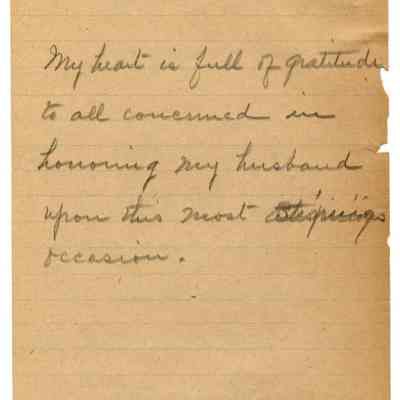 My heart is full of gratitude
to all concerned in
honoring my husband
upon this most
occasion.